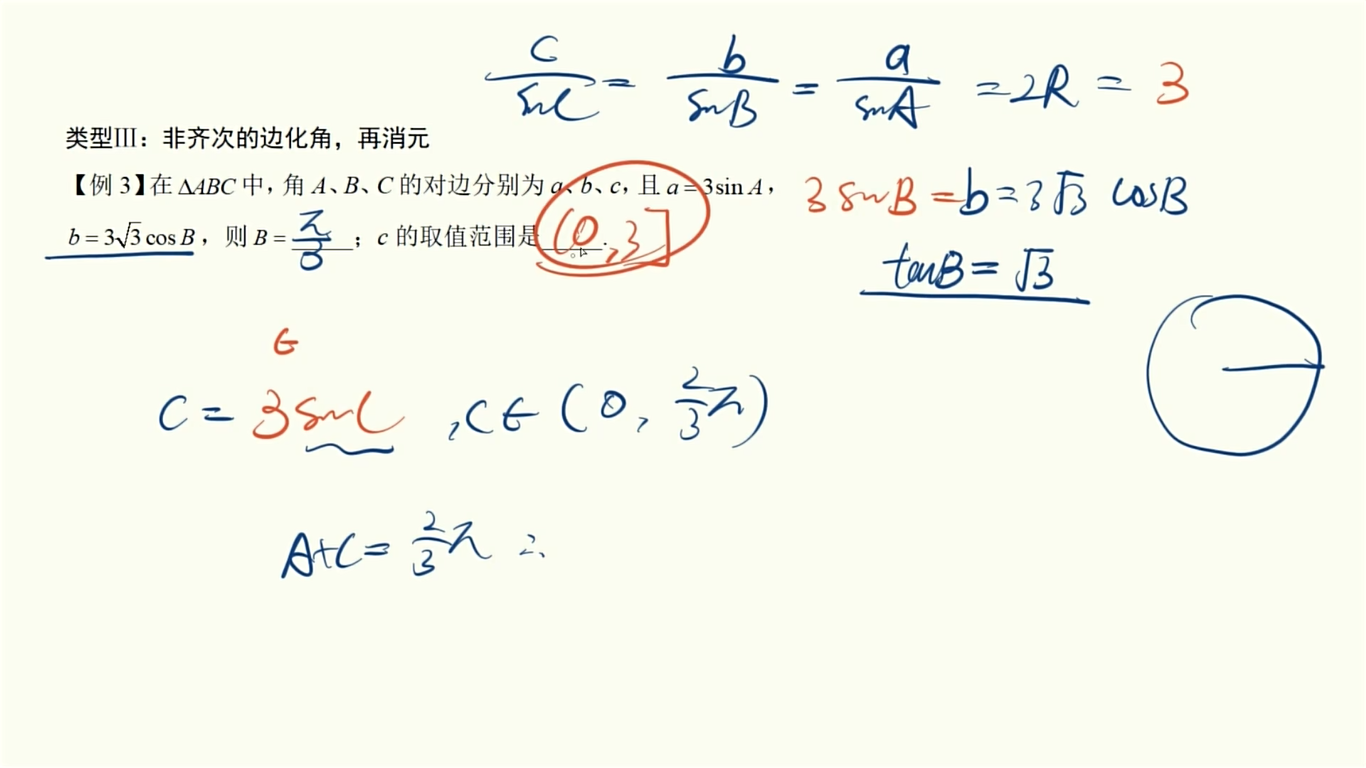 c/sinC = b/sinB = a/sinA = 2R = 3
类型Ⅲ：非齐次的边化角，再消元
【例 3】在 ΔABC 中，角 A、B、C 的对边分别为 a、b、c，且 a = 3sin A，
b = 3√3 cos B，则 B = π/3；c 的取值范围是 (0,3].
3 sinB = b = 3√3 cosB
tanB = √3
C = 3 sinC , C ∈ (0, 2/3 π)
A+C = 2/3 π ∴